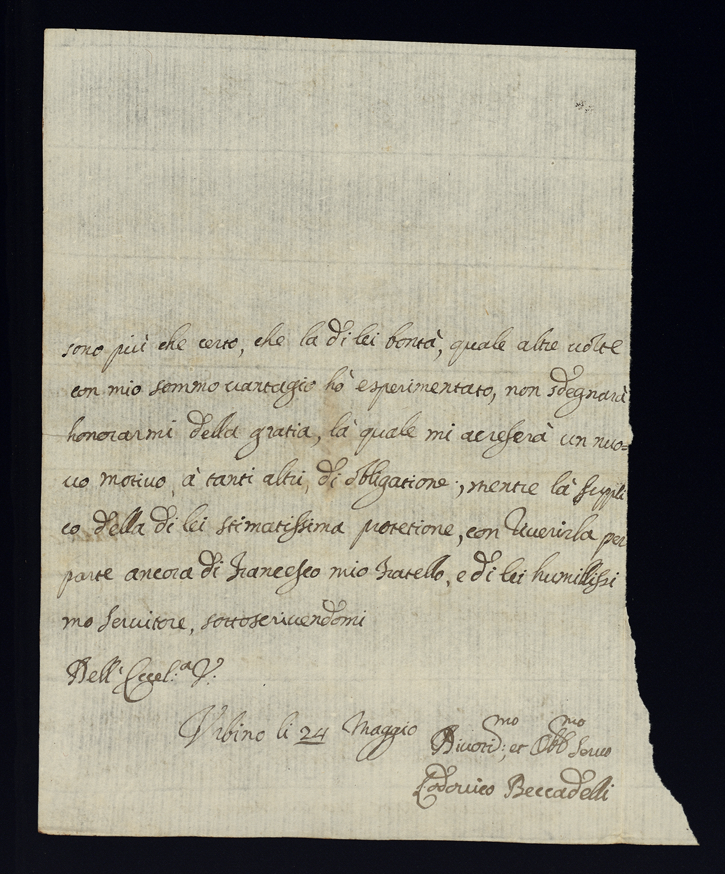 sono più che certo, che la di lei bontà, quale altre uolte
con mio sommo uantagio hò esperimentato, non sdegnarà
honorarmi della gratia, la quale mi acreserà un nuo=
uo motiuo, à tanti altri, di obligatione; mentre là suppli
co della di lei stimatissima protetione, con riuerirla per
parte ancora di Francesco mio Fratello, e di lei humilissi
mo seruitore, sottoscriuendomi
Dell' Eccel:a V:
Vrbino li 24 Maggio
Diuotmo: et Obbmo Seruo
Lodouico Beccadelli